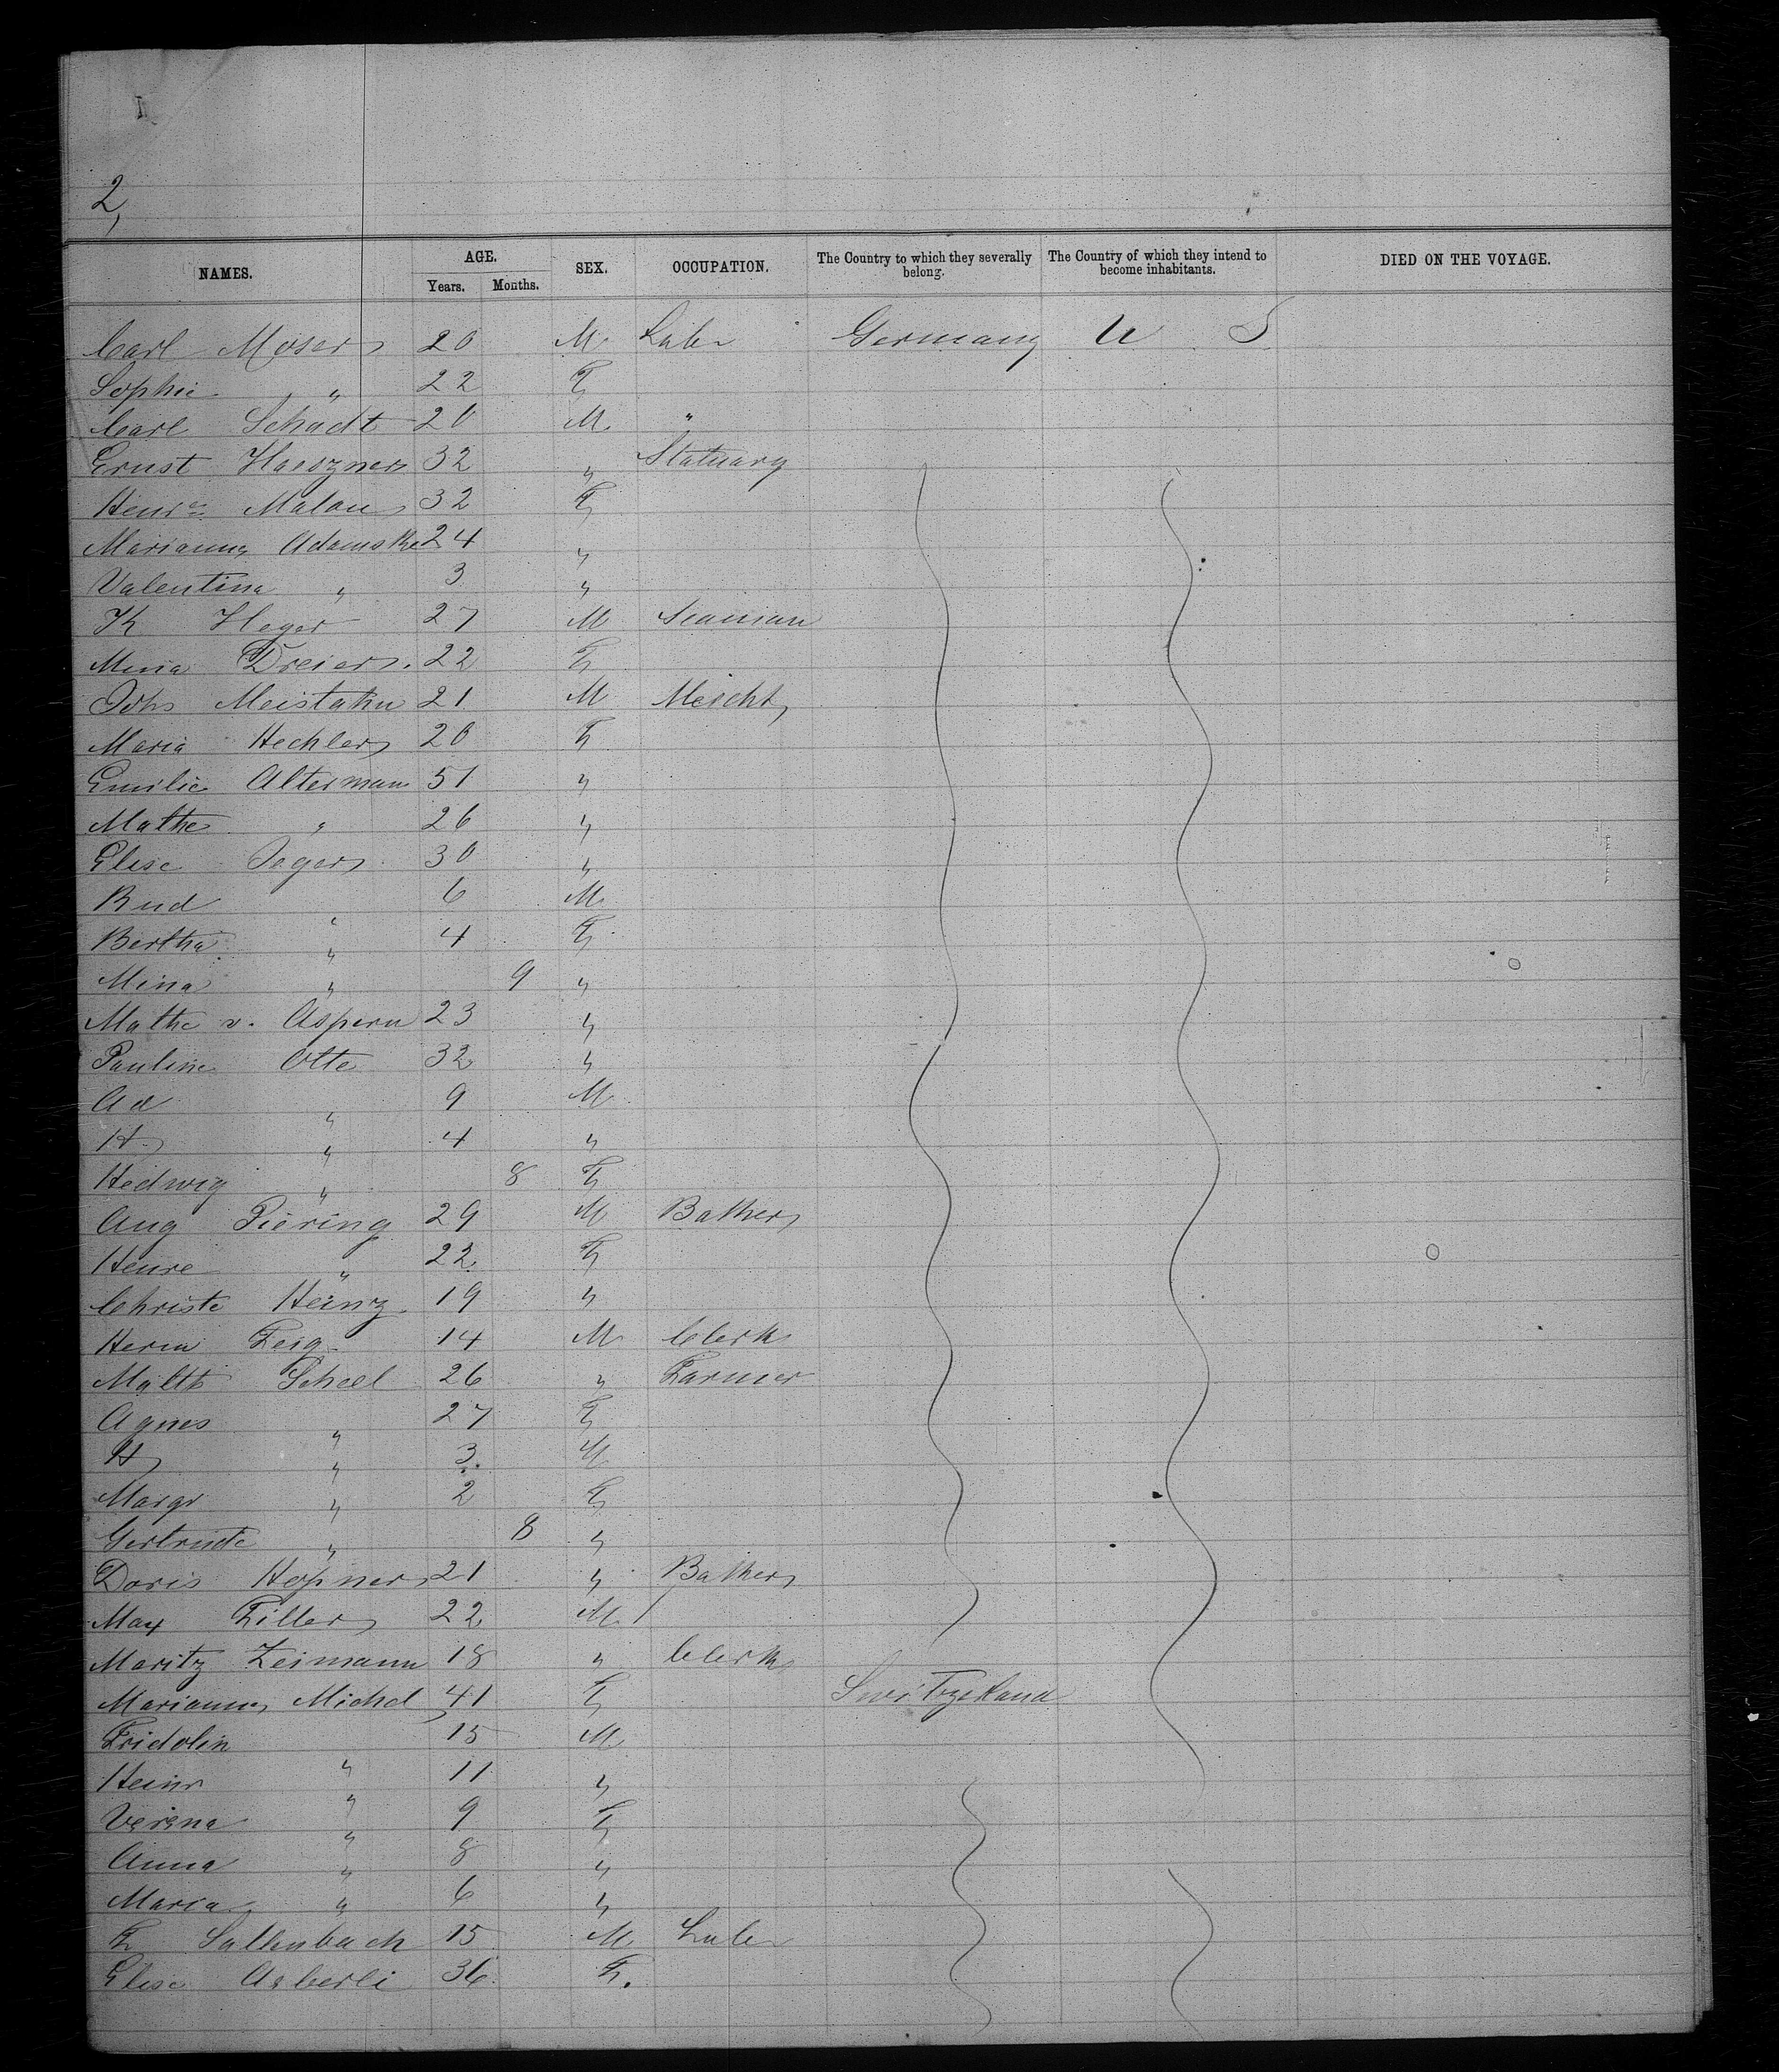 2,
NAMES. AGE. SEX. OCCUPATION. The Country to which they severally belong. The Country of which they intend to become inhabitants. DIED ON THE VOYAGE.
Years. Months.
Carl Moser 20 M. Labr Germany U S
Sophie " 22 F
Carl Schadt 20 M. "
Ernst 32 " Statuary
Henre Malau 32 F
Marianna Adamske 24 "
Valentina " 3 "
K Heger 27 M Seaman
Mina Dreier. 22 F
Johs Meistahn 21 M Mercht,
Maria Hechler 20 F
Emilie Alterman 51 "
Mathe " 26 "
Elise Jeger 30 "
Rud " 6 M.
Bertha " 4 F
Mina " 9 "
Mathe v. Aspern 23 "
Pauline Otte 32 "
Ad " 9 M
H. " 4 "
Hedwig " 8 F
Aug Piering 29 M Baker
Henre " 22 F
Christe Heinz 19 "
Herm Feig 14 M Clerk
Malth Scheel 26 " Farmer
Agnes " 27 F
H " 3 M
Margr " 2 F
Gertrude " 8 "
Doris Hopner 21 " Baker
Max Filler 22 M
Moritz Zeimann 18 " Clerk
Marianna Michel 41 F Switzeland
Fridolin " 15 M
Heinr " 11 "
Verena " 9 F
Anna " 8 "
Maria " 6 "
F Sallenbach 15 M Labr
Elise Aeberli 36 F.